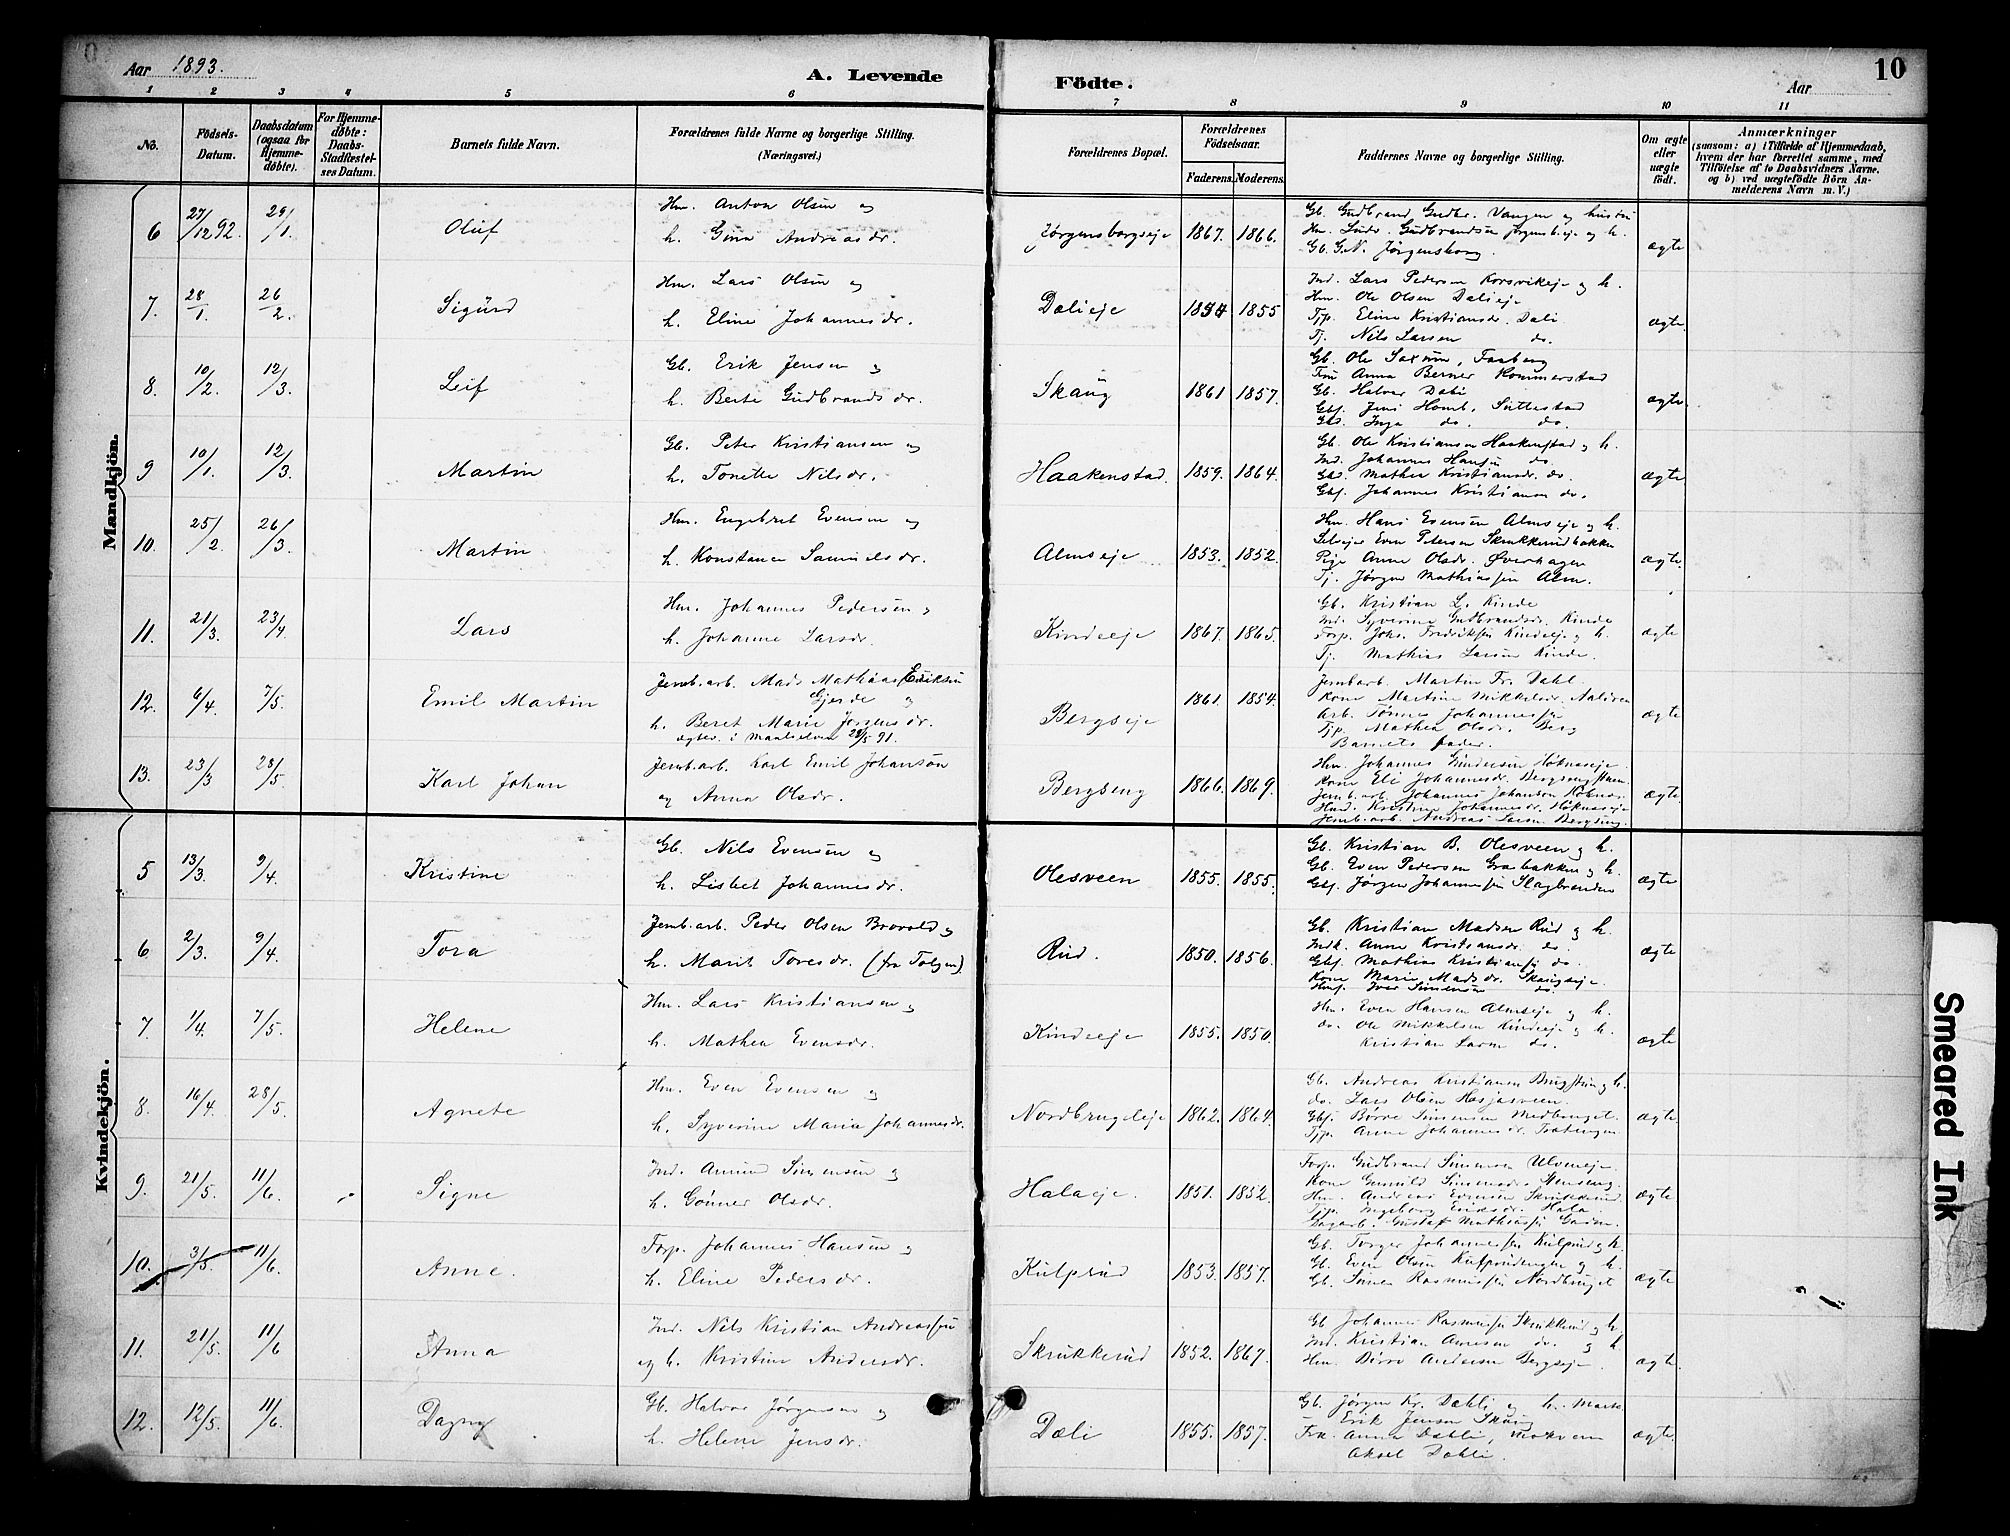 Aar 1893. A. Levende Födte. Aar 10
1 2 3 4 5 6 7 8 9 10 11
No. Födsels-Datum. Daabsdatum (ogsaa for Hjemmedøbte). For Hjemmedøbte: Daabs-Stadfæstelses Datum. Barnets fulde Navn. Forældrenes fulde Navne og borgerlige Stilling. (Næringsvei.) Forældrenes Bopæl. Forældrenes Födselsaar. Faderens. Moderens. Faddernes Navne og borgerlige Stilling. Om ægte eller uægte födt. Anmærkninger (saasom: a) i Tilfælde af Hjemmedaab, hvem der har forrettet samme, med Tilföielse af to Daabsvidners Navne, og b) ved uægtefödte Börn Anmelderens Navn m. V.)
Mandkjön.
6 27/12 92. 29/1. Oluf Hm. Anton Olsen og
h. Gina Andreasdr. Jørgensborgseje 1867. 1866. Gb. Gudbrand Gudbr. Vangen og hustru
Hm. Gudbrandsen Jørgensb.eje og h.
Gb. G. N. Jørgensborg. ægte
7. 28/1. 26/2. Sigurd Hm. Lars Olsen og
h. Eline Johannesdr. Dælieje 1854 1855 Ind. Lars Pedersen Korsvikeje og h.
Hm. Ole Olsen Dælieje
Tjp. Eline Kristiansdr. Dæli
Tj. Nils Larsen do. ægte
8. 10/2. 12/3. Leif Gb. Erik Jensen og
h. Berte Gudbrandsdr. Skaug 1861 1857. Gb. Ole Saxum, Faaberg
Fru Anna Berner Kommerstad
Gb. Halvor Dæli
Gbs. Jens Homb, Suttestad
Gbs. Inga do. do. ægte.
9 10/1. 12/3. Martin Gb. Peter Kristiansen og
h. Tonette Nilsdr. Haakenstad. 1859. 1864. Gb. Ole Kristiansen Haakenstad og h.
Ind. Johannes Hansen do.
Gbs. Mathea Kristiansdr. do.
Gbs. Johannes Kristiansen do. ægte
10. 25/2. 26/3. Martin Hm. Engebret Evensen og
h. Konstance Samuelsdr. Almseje 1853. 1852. Hm. Hans Evensen Almseje og h.
Selvejer Even Petersen Skrukkerudbakken
Pige Anne Olsdr. Øverhagen
Tj. Jørgen Mathiassen Alm. ægte.
11. 21/3. 23/4. Lars Hm. Johannes Pedersen og
h. Johanne Larsdr. Kindseje 1867. 1865. Gb. Kristian L. Kinde
Ind. Syverine Gudbrandsdr. Kinde
Forp. Johs. Fredriksen Kindseje og h.
Tj. Mathias Larsen Kinde. ægte
12. 6/4. 7/5. Emil Martin Jernb.arb. Mads Mathias Eriksen
Gjerde og
h. Beret Marie Jørgensdr.
ægtev. i Maalselven 28/5 91. Bergseje 1861. 1854. Jernbarb. Martin Fr. Dahl.
Kone Martine Mikkelsdr. Aalien
Arb. Tønnes Johannessen
Tjp. Mathea Olsdr. Berg
Barnets fader. ægte
13. 23/3 28/5. Karl Johan Jernb.arb. Karl Emil Johanson
og Anna Olsdr. Bergseng 1866. 1869. Hm. Johannes Gundersen Høknaseje.
Kone Eli Johannesdr. Bergseng
Jernb.arb. Johannes Johanson Høknas.
Kristine Johannesdr. Høknaseje
Jernb.arb. Andreas Larsen Bergseng. ægte
Kvindekjön.
5 13/3. 9/4. Kristine Gb. Nils Evensen og
h. Lisbet Johannesdr. Olesveen 1855. 1855. Gb. Kristian B. Olesveen og h.
Gb. Even Pedersen Grøbakken og h.
Gbs. Jørgen Johannessen Slagbrenden ægte
6 2/3. 9/4. Tora Jernb.arb. Peder Olsen Brovold og
h. Marit Toresdr. (fra Tolgen) Rud. 1850. 1856. Gb. Kristian Madsen Rud og h.
Indk. Anne Kristiansdr. do.
Gbs. Mathias Kristiansen do.
Kone Marie Madsdr. Skaugseje.
Iver Simensen do. ægte
7. 1/4. 7/5. Helene Hm. Lars Kristiansen og
h. Mathea Evensdr. Kindseje 1855. 1850. Hm. Even Hansen Almseje og h.
do. Ole Mikkelsen Kindseje og h.
Kristian Larsen do. ægte
8. 16/4. 28/5. Agnete Hm. Even Evensen og
h. Syverine Maria Johannesdr. Nordbrugdeje 1862. 1864. Gb. Andreas Kristiansen og h.
do. Lars Olsen Hasjasveen.
Gbs. Børre Simensen Nedbruget.
Tjp. Anne Johannesdr. ægte
9. 21/5. 11/6. Signe Ind. Amund Simensen og
h. Gunner Olsdr. Halaeje. 1851. 1852. Forp. Gudbrand Simensen Ulveneje.
Kone Gunnild Simensdr. Stenseng.
Hm. Andreas Evensen Skrukkerud.
Tjp. Ingeborg Eriksdr. Hala.
Dagarb. Gustaf Mathiassen ægte
10. 3/5. 11/6. Anne. Forp. Johannes Hansen og
h. Eline Pedersdr. Kulprud 1853. 1857. Gb. Torger Johannessen Kulprud og h.
Gb. Even Olsen og h.
Gb. Simen Rasmussen Nordbruget ægte
11. 21/5. 11/6 Anna Ind. Nils Kristian Andreassen
og h. Kristine Andersdr. Skrukkerud 1852. 1867. Gb. Johannes Rasmussen Skrukkerud og h.
Ind. Kristian Arnesen do. h.
Hm. Børre Andersen Bergseje. ægte.
12. 12/5. 11/6. Dagny Gb. Halvor Jørgensen og
h. Helene Jensdr. Dæli 1855. 1857. Gb. Jørgen Kr. Dæhli og h. Marte
Erik Jensen Skaug
Frk. Anna Dæhli,
Aksel Dæhli. ægte.
Smeared Ink